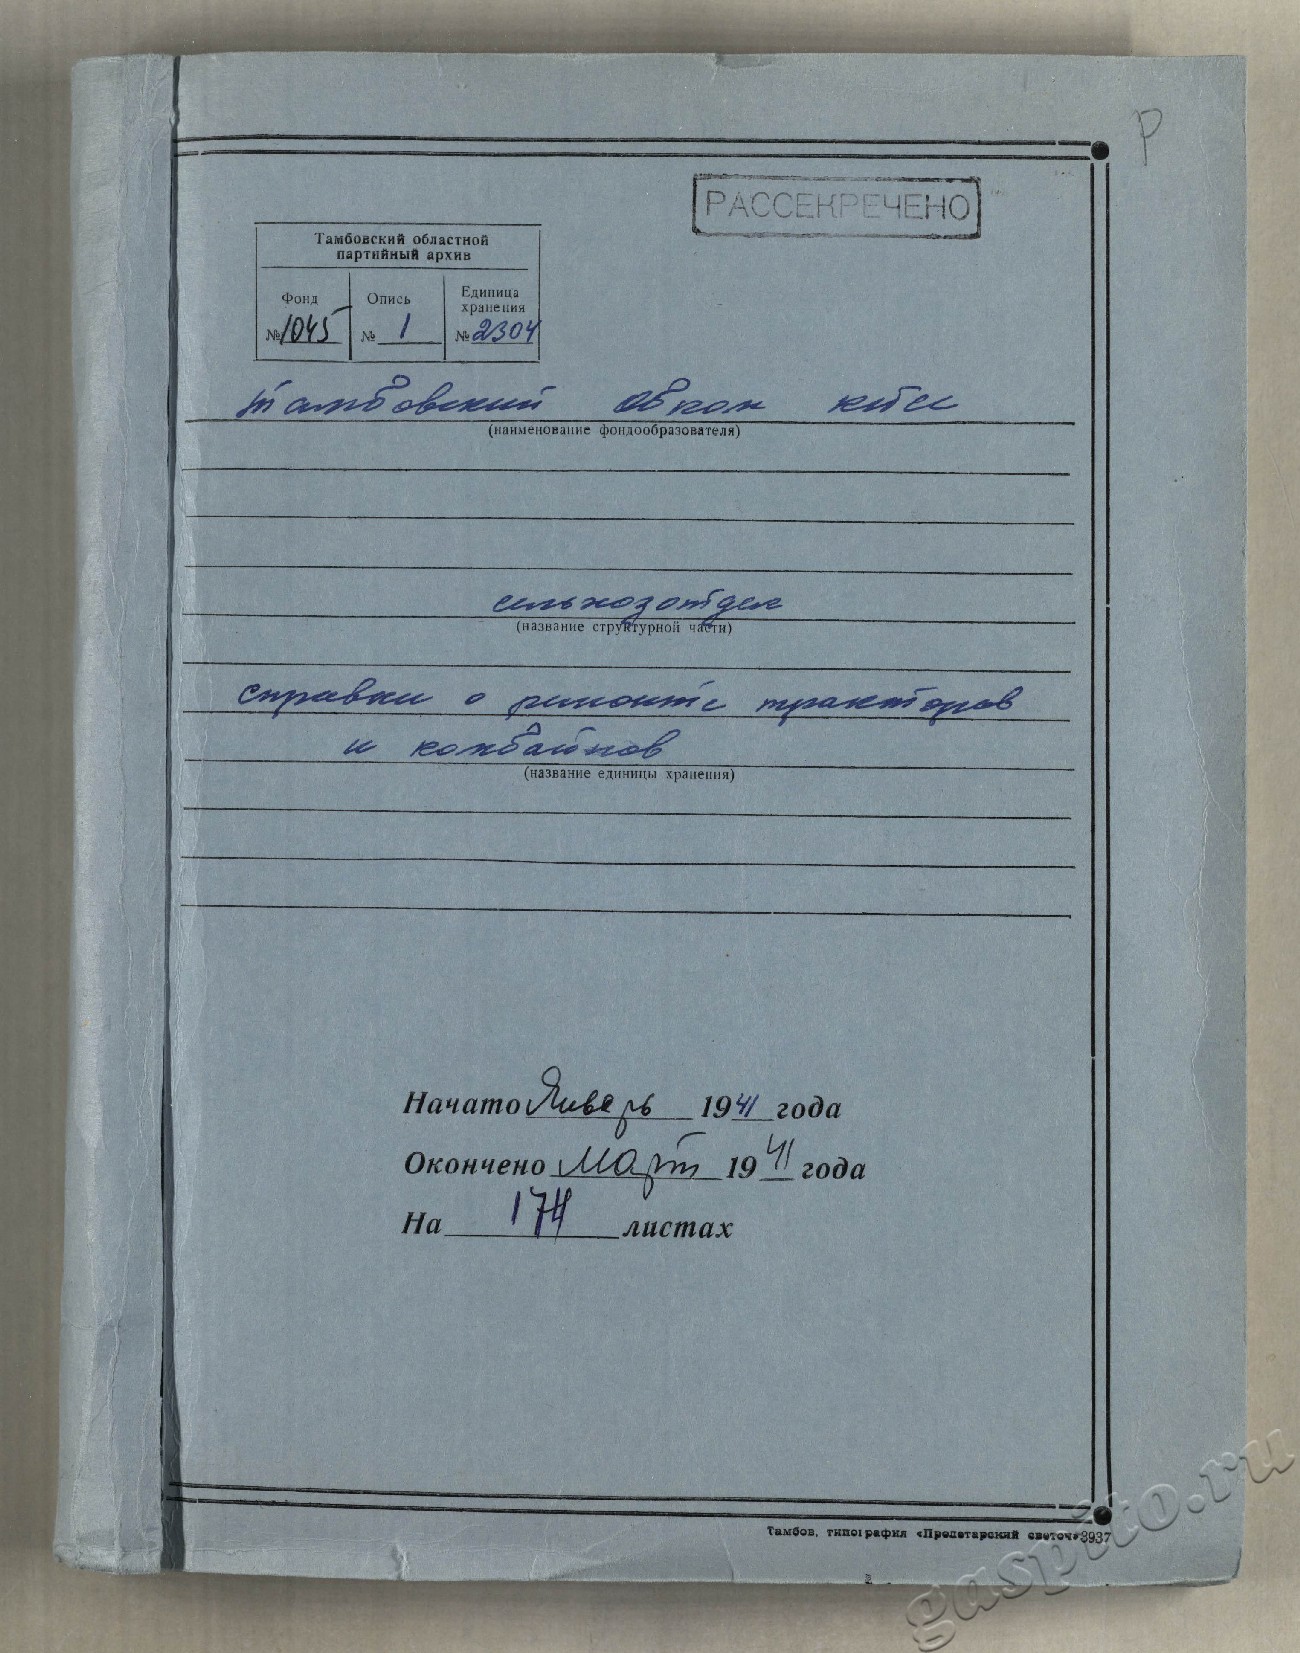 Р
РАССЕКРЕЧЕНО
Тамбовский областной
партийный архив
Фонд
№ 1045
Опись
№ 1
Единица
хранения
№ 2304
Тамбовский обком КПСС
(наименование фондообразователя)
сельхозотдел
(название структурной части)
справки о ремонте тракторов
и комбайнов
(название единицы хранения)
Начато Январь 1941 года
Окончено Март 1941 года
На 174 листах
Тамбов, типография «Пролетарский светоч» 3937
gaspito.ru